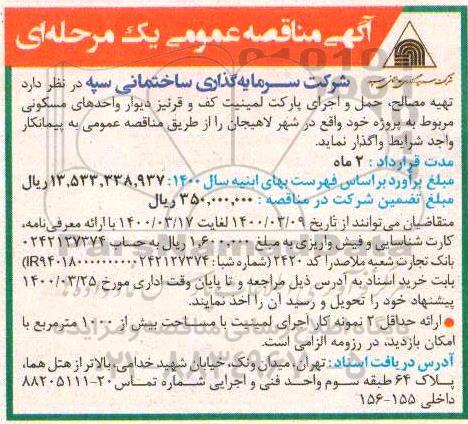 آگهی مناقصه عمومی یک مرحله‌ای
شرکت سرمایه‌گذاری ساختمانی سپه در نظر دارد
تهیه مصالح، حمل و اجرای پارکت لمینیت کف و قرنیز دیوار واحدهای مسکونی
مربوط به پروژه خود واقع در شهر لاهیجان را از طریق مناقصه عمومی به پیمانکار
واجد شرایط واگذار نماید.
مدت قرارداد : ۲ ماه
مبلغ برآورد براساس فهرست بهای ابنیه سال ۱۴۰۰: ۱۳,۵۳۳,۳۳۸,۹۳۷ ریال
مبلغ تضمین شرکت در مناقصه : ۳۵۰,۰۰۰,۰۰۰ ریال
متقاضیان می‌توانند از تاریخ ۱۴۰۰/۰۳/۰۹ لغایت ۱۴۰۰/۰۳/۱۷ با ارائه معرفی‌نامه،
کارت شناسایی و فیش واریزی به مبلغ ۱,۶۰۰,۰۰۰ ریال به حساب ۰۲۴۲۱۲۷۳۷۴
بانک تجارت شعبه ملاصدرا کد ۲۴۲۰ (شماره شبا:
بابت خرید اسناد به آدرس ذیل مراجعه و تا پایان وقت اداری مورخ ۱۴۰۰/۰۳/۲۵
پیشنهاد خود را تحویل و رسید آن را اخذ نمایند.
● ارائه حداقل ۲ نمونه کار اجرای لمینیت با مساحت بیش از ۱۰۰۰ مترمربع با
امکان بازدید، در رزومه الزامی است.
آدرس دریافت اسناد: تهران، میدان ونک، خیابان شهید خدامی، بالاتر از هتل هما،
پلاک ۶۴ طبقه سوم واحد فنی و اجرایی شماره تماس ۲۰-۸۸۲۰۵۱۱۱
داخلی ۱۵۵-۱۵۶